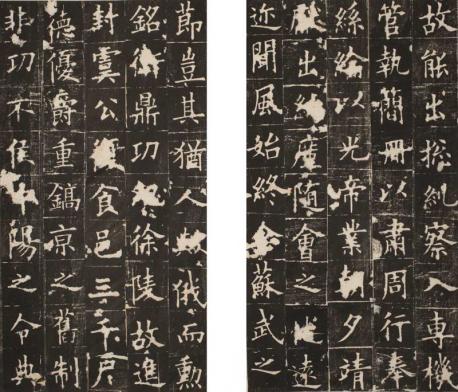 故能出揔糺察入專機
管執簡冊以肅周行奏
絲綸以光帝業朝夕靖
出納隨會之遠
迩聞風始終全蘇武之
莭豈其猶人歟俄而勳
銘衛鼎功徐陵故進
封虞公食邑三千戶
德優爵重鎬京之舊制
非功不侯陽之令典